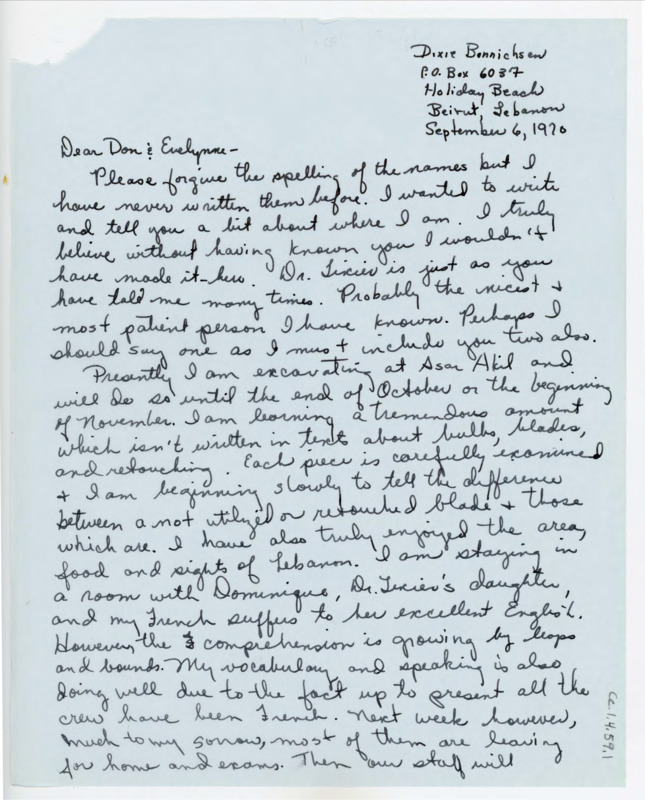 Dixie Bonnichsen
P.O. Box 6037
Holiday Beach
Beirut, Lebanon
September 6, 1970
Dear Don & Evelynne -
Please forgive the spelling of the names but I
have never written them before. I wanted to write
and tell you a bit about where I am. I truly
believe without having known you I wouldn't
have made it - here. Dr. Tixier is just as you
have told me many times. Probably the nicest +
most patient person I have known. Perhaps I
should say one as I must include you two also.
Presently I am excavating at Asar Akil and
will do so until the end of October or the beginning
of November. I am learning a tremendous amount
which isn't written in texts about bulbs, blades,
and retouching. Each piece is carefully examined
+ I am beginning slowly to tell the difference
between a not utilized or retouched blade + those
which are. I have also truly enjoyed the area,
food and sights of Lebanon. I am staying in
a room with Dominique, Dr. Tixier's daughter,
and my French suffers to her excellent English.
However, the comprehension is growing by leaps
and bounds. My vocabulary and speaking is also
doing well due to the fact up to present all the
crew have been French. Next week however,
much to my sorrow, most of them are leaving
for home and exams. Then our staff will
Ce.1.4.59.1